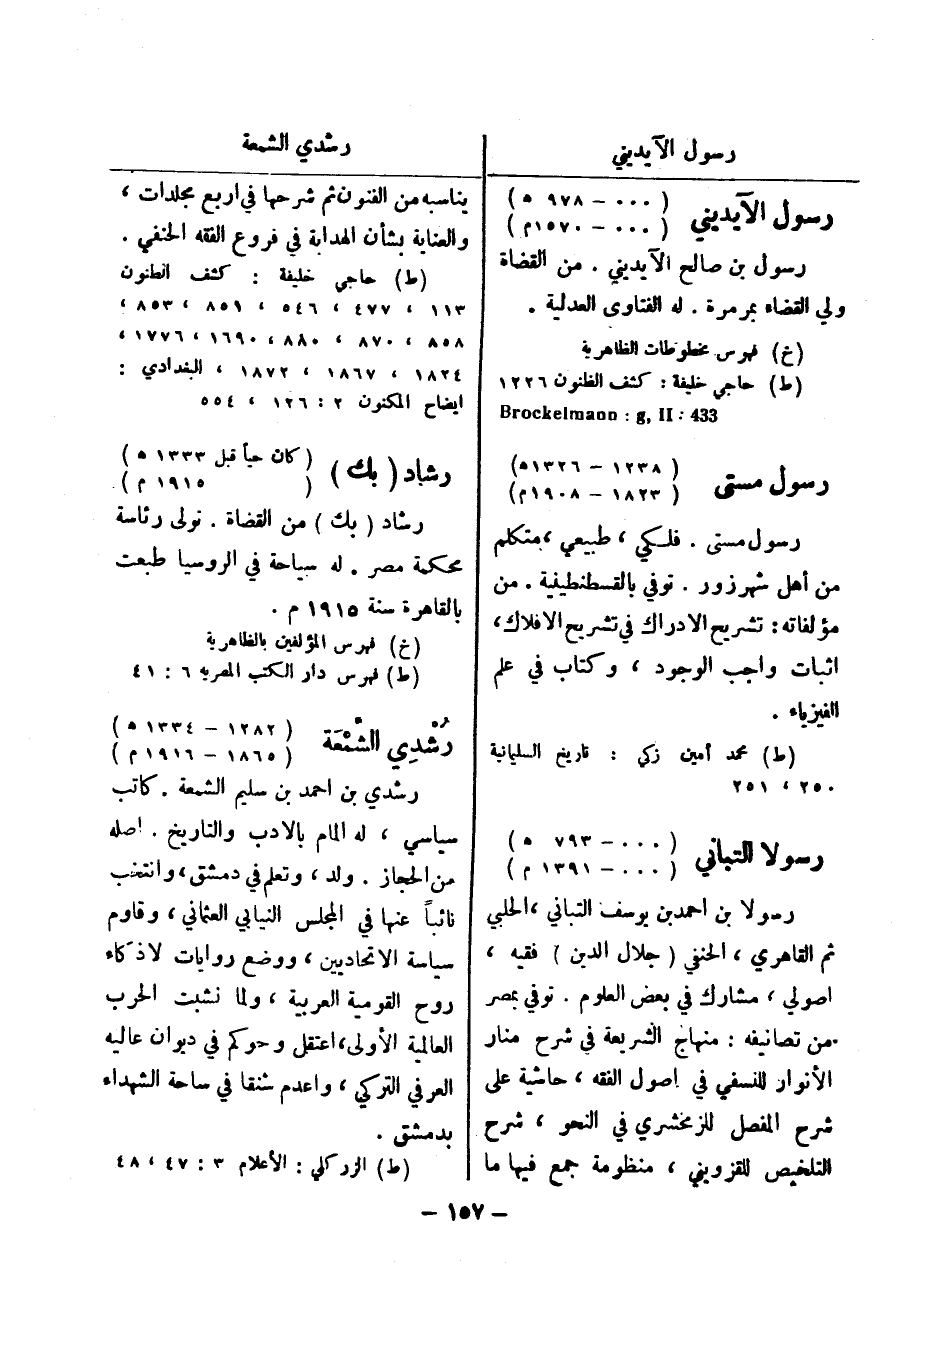 رسول الآيديني
رسول الآيديني
( ٠٠٠ – ٩٧٨ ه )
( ٠٠٠ – ١٥٧٠م )
رسول بن صالح الآيديني . من القضاة
ولي القضاء بمرمرة . له الفتاوى العدلية .
(خ) فهرس مخطوطات الظاهرية
(ط) حاجي خليفة : كشف الظنون ١٢٢٦
Brockelmann : g, II : 433
رسول مستى
( ١٢٣٨ – ١٣٢٦ه)
( ١٨٢٣ – ١٩٠٨م)
رسول مستى . فلكي ، طبيعي ، متكلم
من أهل شهرزور . توفي بالقسطنطينية . من
مؤلفاته : تشريح الادراك في تشريح الافلاك،
اثبات واجب الوجود ، وكتاب في علم
الفيزياء .
(ط) محمد أمين زكي : تاريخ السليمانية
٢٥٠ ، ٢٥١
رسولا التباني
( ٠٠٠ – ٧٩٣ ه )
( ٠٠٠ – ١٣٩١ م )
رسولا بن احمد بن يوسف التباني ، الحلبي
ثم القاهري ، الحنفي ( جلال الدين ) فقيه ،
اصولي ، مشارك في بعض العلوم . توفي بمصر
من تصانيفه : منهاج الشريعة في شرح منار
الأنوار للنسفي في اصول الفقه ، حاشية على
شرح المفصل للزمخشري في النحو ، شرح
التلخيص للقزويني ، منظومة جمع فيها ما
رشدي الشمعة
يناسبه من الفنون ثم شرحها في اربع مجلدات ،
والعناية بشأن الهداية في فروع الفقه الحنفي .
(ط) حاجي خليفة : كشف الظنون
١١٣ ، ٤٧٧ ، ٥٤٦ ، ٨٥١ ، ٨٥٣ ،
٨٥٨ ، ٨٧٠ ، ٨٨٠ ، ١٦٩٠ ، ١٧٧٦ ،
١٨٢٤ ، ١٨٦٧ ، ١٨٧٢ ، البغدادي :
ايضاح المكنون ٢ : ١٢٦ ، ٥٥٤
رشاد ( بك )
( كان حياً قبل ١٣٣٣ ه )
( ١٩١٥ م )
رشاد ( بك ) من القضاة . تولى رئاسة
محكمة مصر . له سياحة في الروسيا طبعت
بالقاهرة سنة ١٩١٥ م .
(خ) فهرس المؤلفين بالظاهرية
(ط) فهرس دار الكتب المصرية ٦ : ٤١
رُشْدِي الشَّمْعَة
( ١٢٨٢ – ١٣٣٤ ه )
( ١٨٦٥ – ١٩١٦ م )
رشدي بن احمد بن سليم الشمعة . كاتب
سياسي ، له المام بالادب والتاريخ . اصله
من الحجاز . ولد ، وتعلم في دمشق ، وانتخب
نائباً عنها في المجلس النيابي العثماني ، وقاوم
سياسة الاتحاديين ، ووضع روايات لاذكاء
روح القومية العربية ، ولما نشبت الحرب
العالمية الأولى، اعتقل وحوكم في ديوان عاليه
العرفي التركي ، واعدم شنقا في ساحة الشهداء
بدمشق .
(ط) الزركلي : الأعلام ٣ : ٤٧ ، ٤٨
– ١٥٧ –